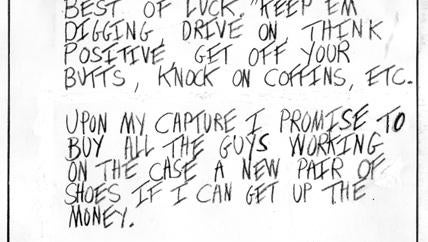 BEST OF LUCK. "KEEP EM
DIGGING, DRIVE ON, THINK
POSITIVE, GET OFF YOUR
BUTTS, KNOCK ON COFFINS, ETC.
UPON MY CAPTURE I PROMISE TO
BUY ALL THE GUYS WORKING
ON THE CASE A NEW PAIR OF
SHOES IF I CAN GET UP THE
MONEY.